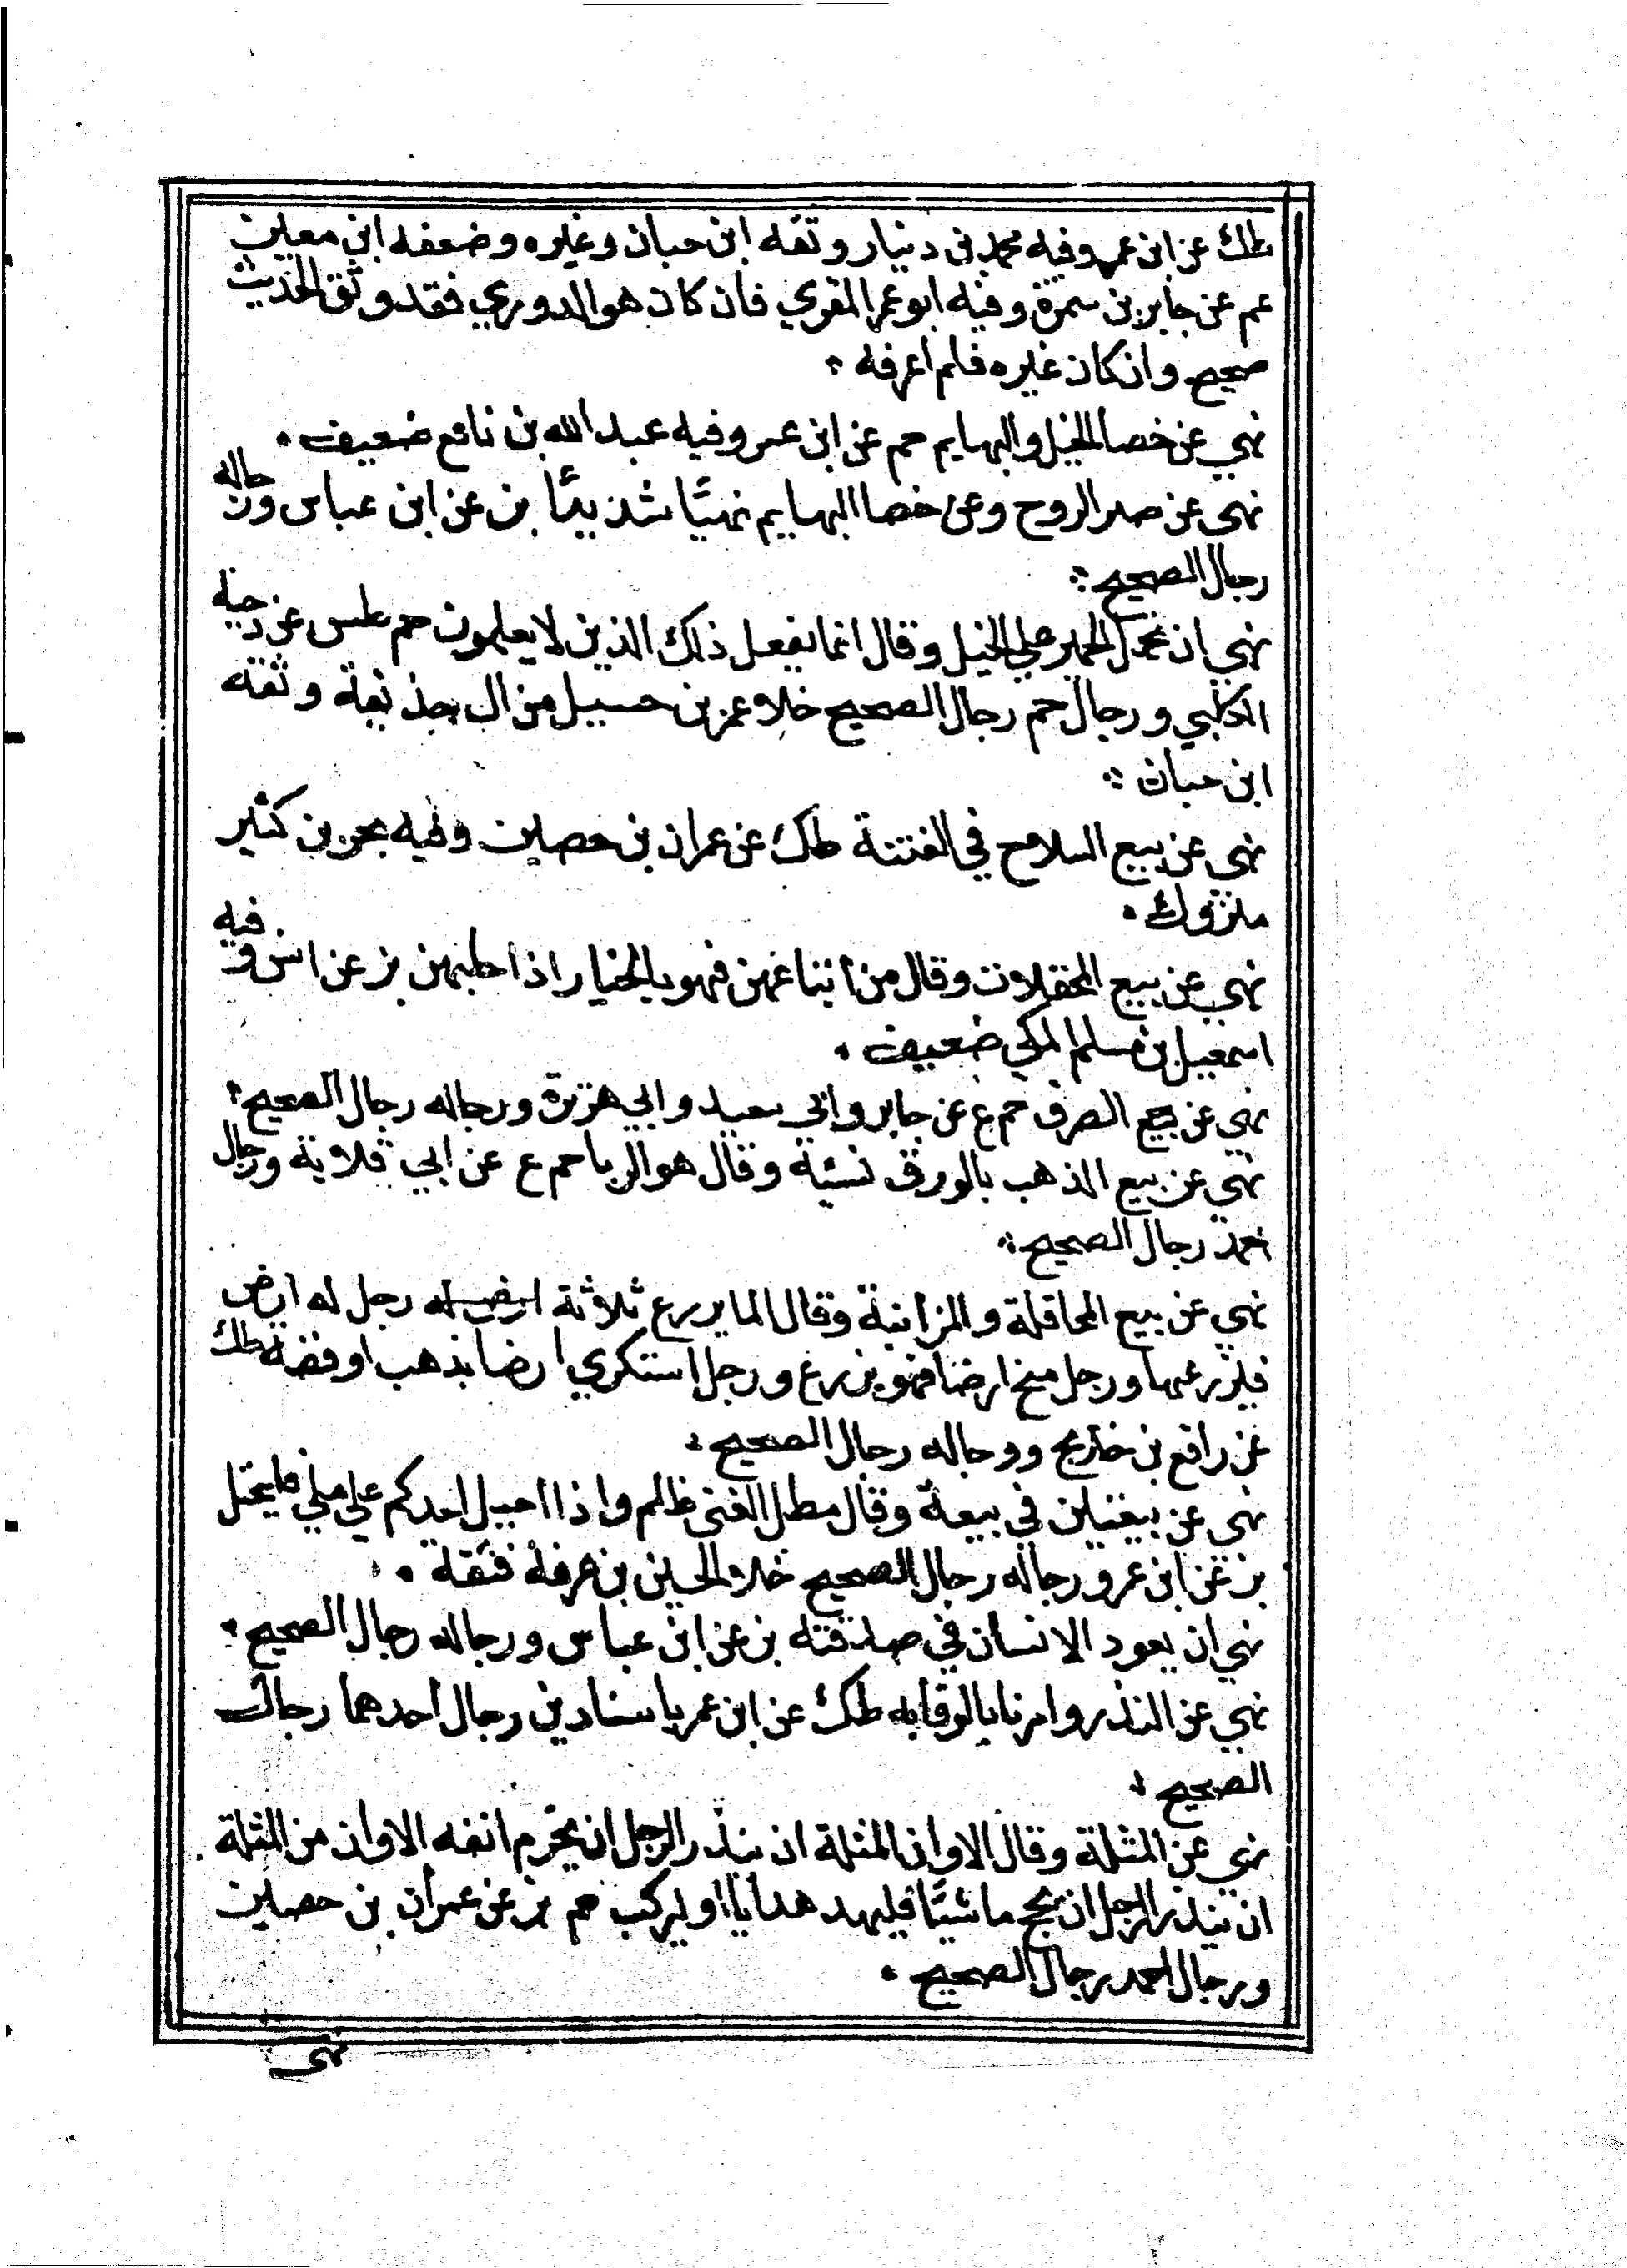 طك عن ابن عمر وفيه محمد بن دينار وثقه ابن حبان وغيره وضعفه ابن معين
عم عن جابر بن سمرة وفيه ابو عمر المقري فان كان هو الدوري فقد وثق الحديث
صحيح وان كان غيره فلم اعرفه
نهي عن خصا الخيل والبهايم حم عن ابن عمر وفيه عبد الله بن نافع ضعيف
نهى عن صبر الروح وعن خصا البهايم نهيا شديدا بز عن ابن عباس ورجاله
رجال الصحيح
نهي ان نحمل الحمير على الخيل وقال انما يفعل ذلك الذين لا يعلمون حم طس عن دحية
الكلبي ورجال حم رجال الصحيح خلا عمر بن حسيل من ال حذيفة وثقه
ابن حبان
نهي عن بيع السلاح في الفتنة طك عن عمران بن حصين وفيه بحر بن كثير
متروك
نهي عن بيع المحفلات وقال من ابتاعهن فهو بالخيار اذا حلبهن بز عن انس وفيه
اسمعيل بن مسلم المكي ضعيف
نهي عن بيع الصرف حم ع عن جابر وابي سعيد وابي هريرة ورجاله رجال الصحيح
نهي عن بيع الذهب بالورق نسئة وقال هو الربا حم ع عن ابي قلابة ورجال
احمد رجال الصحيح
نهي عن بيع المحاقلة والمزابنة وقال انما يزرع ثلاثة ارض له رجل له ارض
فليزرعها ورجل منح ارضا فهو يزرع ورجل استكري ارضا بذهب او فضة طك
عن رافع بن خديج ورجاله رجال الصحيح
نهى عن بيعتين في بيعة وقال مطل الغنى ظلم واذا احيل احدكم على ملي فليحتل
بز عن ابن عمر ورجاله رجال الصحيح خلا الحسن بن عرفة فثقة
نهي ان يعود الانسان في صدقته بز عن ابن عباس ورجاله رجال الصحيح
نهي عن النذر وامرنا بالوفا به طك عن ابن عمر باسنادين رجال احدهما رجال
الصحيح
نهي عن المثلة وقال الا وان المثلة ان ينذر الرجل ان يخرم انفه الا وان من المثلة
ان ينذر الرجل ان يحج ماشيا فليهد هدايا او ليركب حم بز عن عمران بن حصين
ورجال احمد رجال الصحيح
نهى